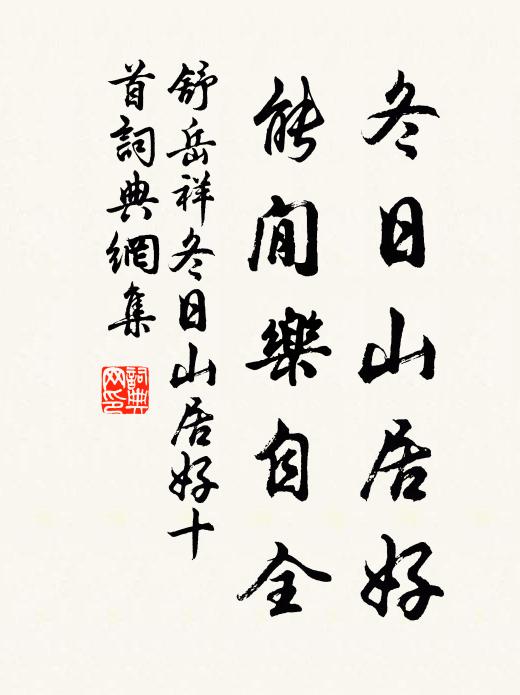 冬日山居好
能閒樂自全
舒岳祥冬日山居好十
首詞典網集
詞典
网印